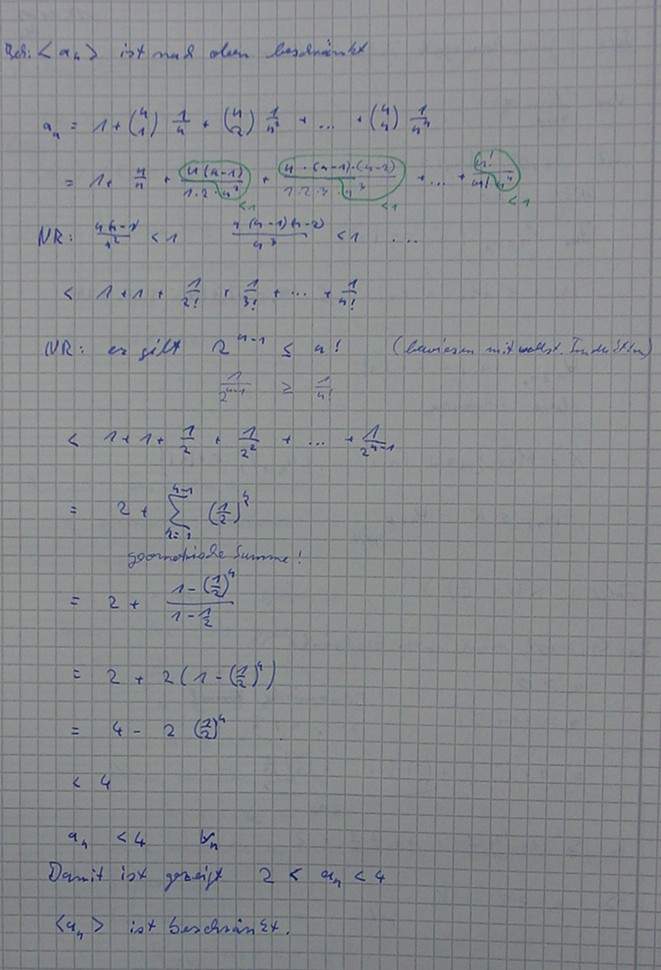 Beh: <aₙ> ist nach oben beschränkt
aₙ = 1 + (n 1) 1/n + (n 2) 1/n² + ... + (n n) 1/nⁿ
= 1 + n/n + n(n-1)/(1·2·n²) + n·(n-1)·(n-2)/(1·2·3·n³) + ... + n!/(n!·nⁿ)
<1 <1 <1
NR: n(n-1)/n² < 1 n·(n-1)(n-2)/n³ < 1 ....
< 1 + 1 + 1/2! + 1/3! + ... + 1/n!
NR: es gilt 2ⁿ⁻¹ ≤ n! (bewiesen mit vollst. Induktion)
1/2ⁿ⁻¹ ≥ 1/n!
< 1 + 1 + 1/2 + 1/2² + ... + 1/2ⁿ⁻¹
= 2 + ∑ₖ₌₁ⁿ⁻¹ (1/2)ᵏ
geometrische Summe!
= 2 + (1 - (1/2)ⁿ)/(1 - 1/2)
= 2 + 2(1 - (1/2)ⁿ)
= 4 - 2 (1/2)ⁿ
< 4
aₙ < 4 ∀n
Damit ist gezeigt 2 < aₙ < 4
<aₙ> ist beschränkt.